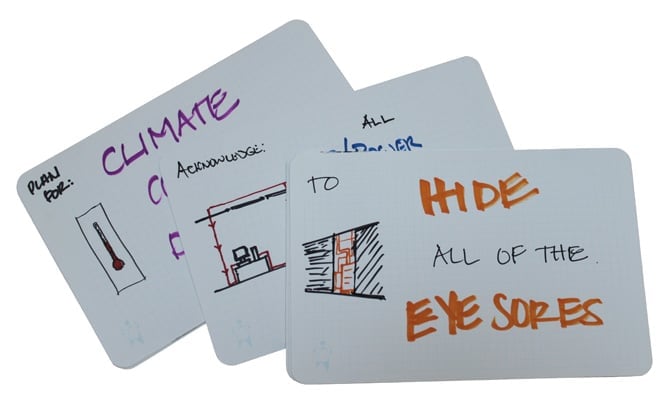 PLAN
FOR:
CLIMATE
ACKNOWLEDGE:
ALL
TO
HIDE
ALL OF THE
EYE SORES